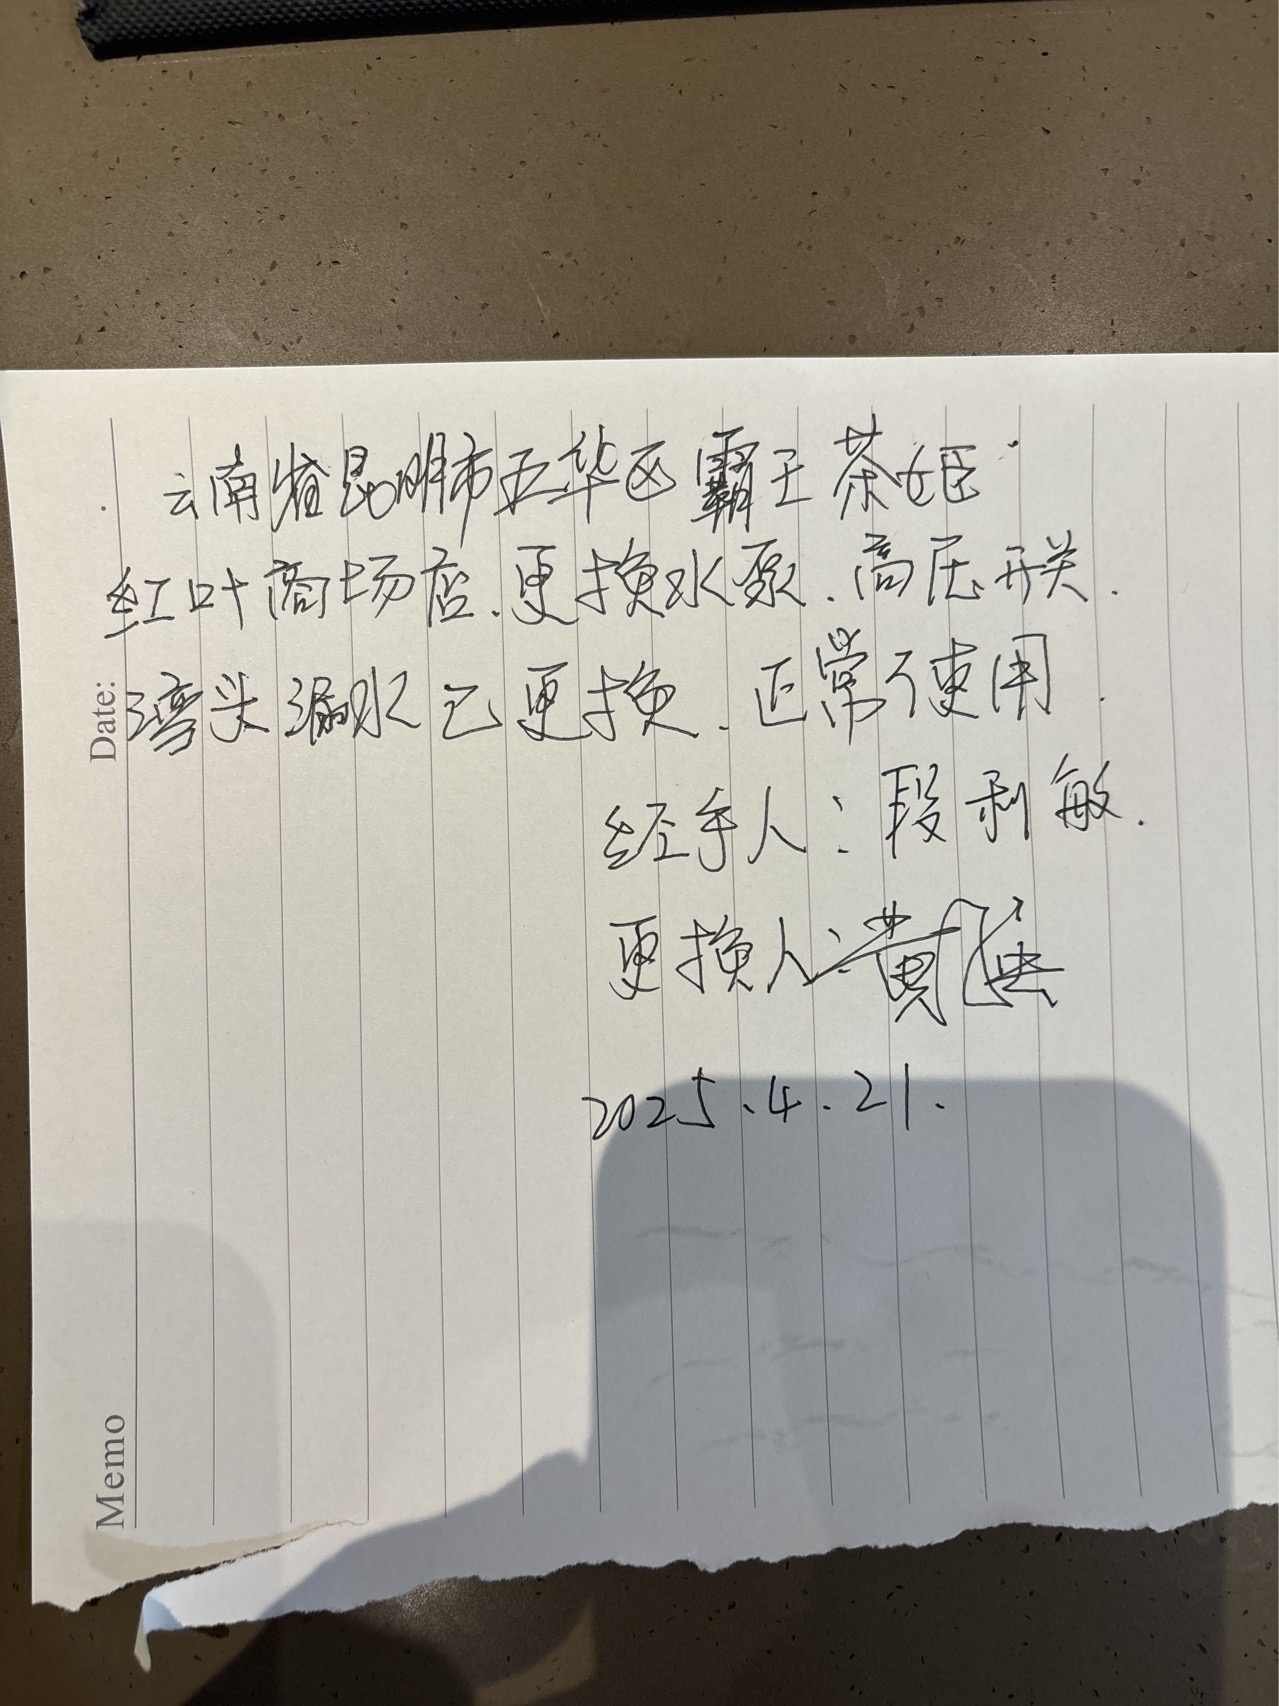 云南省昆明市五华区霸王茶姬
红叶商场店.更换水泵.高压开关.
湾头漏水已更换.正常使用.
经手人:段利敏.
更换人:黄
2025.4.21.
Date:
Memo